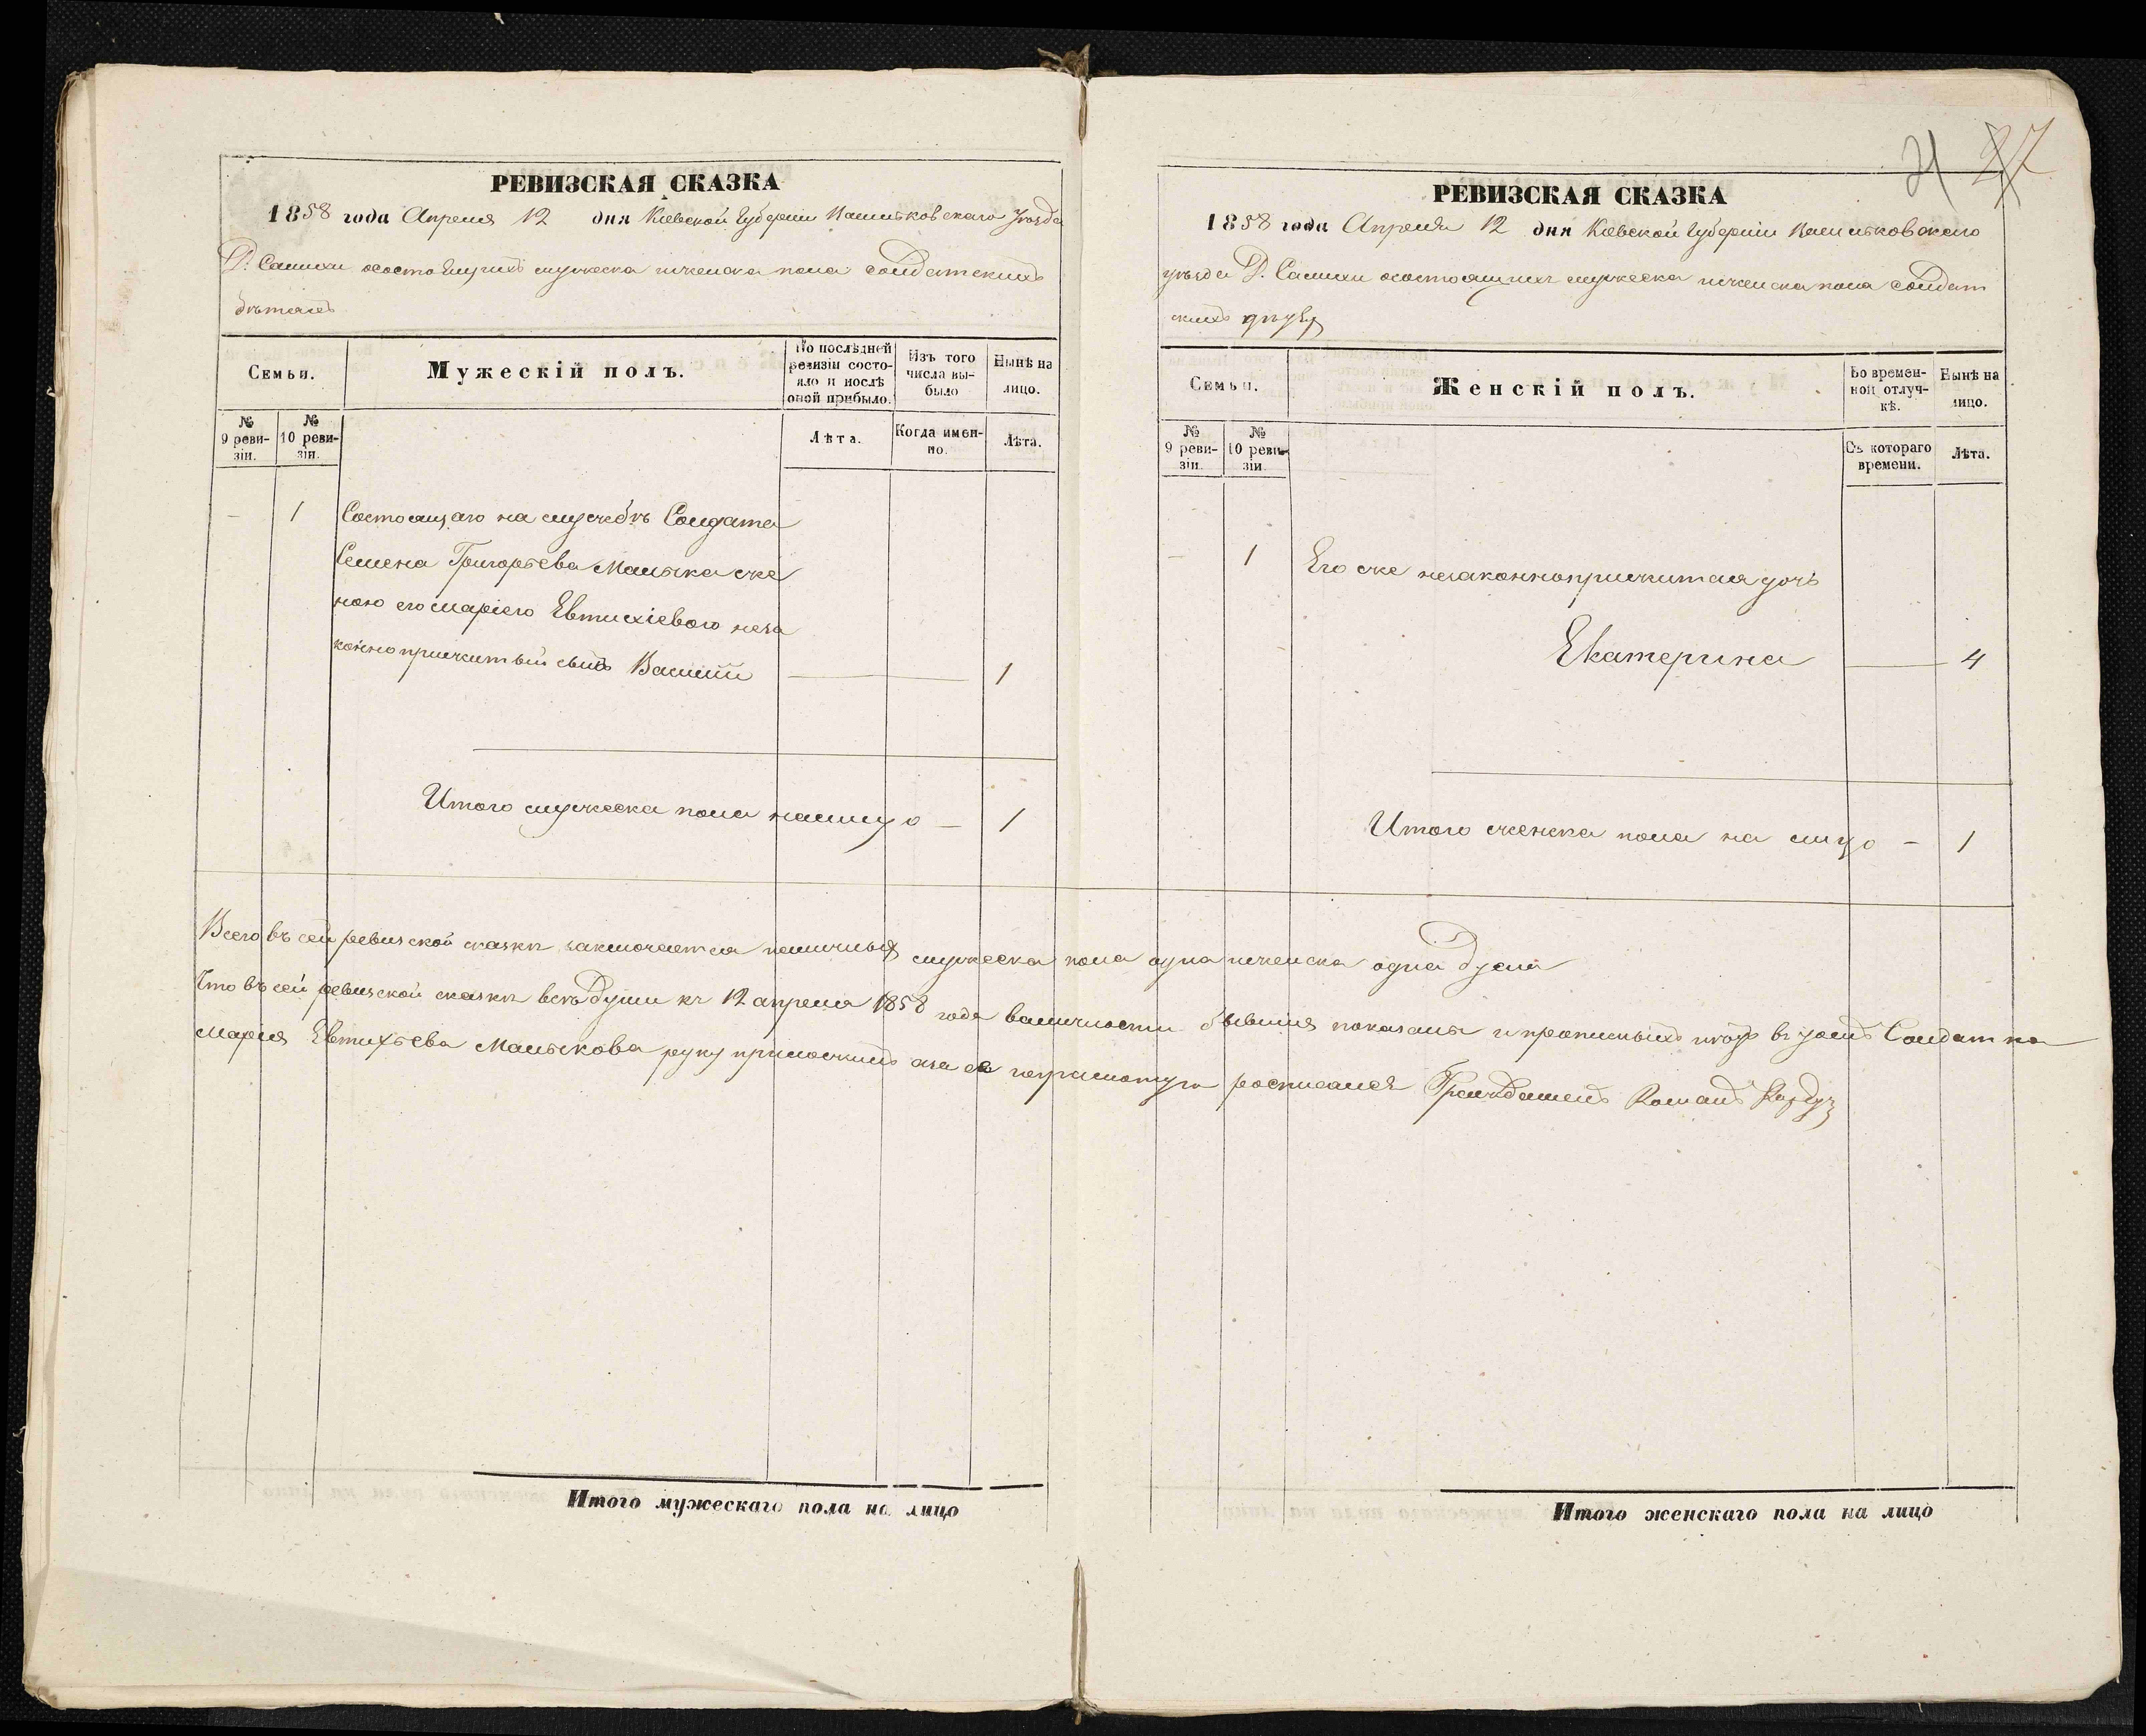 РЕВИЗСКАЯ СКАЗКА
1858 года Апреля 12 дня Кіевской Губерніи Васильковскаго Уѣзда
Д. Салихи осостоящихъ мужеска иженска пола Солдатскихъ
дѣтяхъ
Семьи.
Мужескій полъ.
По послѣдней ревизіи состояло и послѣ оной прибыло.
Изъ того числа выбыло
Нынѣ на лицо.
№ 9 ревизіи.
№ 10 ревизіи.
Лѣта.
Когда именно.
Лѣта.
— 1 Состоящаго на службѣ Солдата
Семена Григорьева Малыка же
ною его Маріею Евтихіевою неза
коннοприжитый сынъ Василій — 1
Итого мужеска пола налицо — 1
21 27
РЕВИЗСКАЯ СКАЗКА
1858 года Апреля 12 дня Кіевской Губерніи Васильковскаго
уѣзда Д. Салихи осостоящихъ мужеска иженска пола Солдат
скихъ
Семьи.
Женскій полъ.
Во временной отлучкѣ.
Нынѣ на лицо.
№ 9 ревизіи.
№ 10 ревизіи.
Съ котораго времени.
Лѣта.
— 1 Его же незаконноприжитая дочь
Екатерина — 4
Итого женска пола на лицо — 1
Всего въ сей ревизской сказки заключается наличныхъ мужеска пола одна иженска одна душа
Что въ сей ревизской сказки всѣ души къ 12 апреля 1858 года валичности бывшия показаны и прописныхъ Солдатка
Марія Евтихьева Малыкова руку приложилъ аза ее неграмотную росписался Гражданинъ Романъ
Итого мужескаго пола на лицо
Итого женскаго пола на лицо